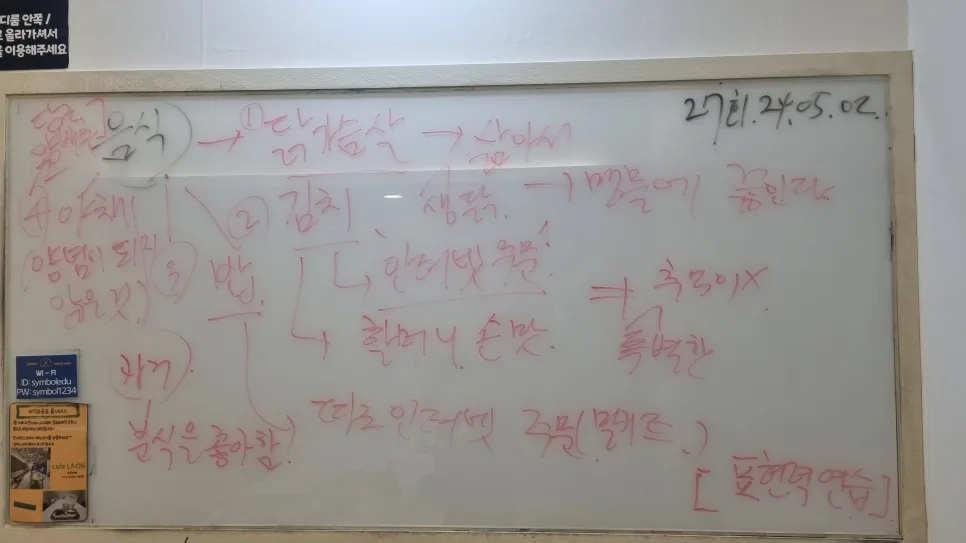 디룸 안쪽 /
로 올라가셔서
을 이용해주세요
27회. 24.05.02.
음식) → ① 닭가슴살 → 삶아서
② 김치 생닭. → 맹물에 끓인다
④ 야채
(양념이 되지
않은 것)
③ 밥.
↳ 인터넷 주문!
→ 할머니 손맛.
⇒
특별한
과거)
분식을 좋아함!
따로 인터넷 주문( )
[표현력 연습]
WI-FI
ID: symboledu
PW: symbol1234
cafe LAON